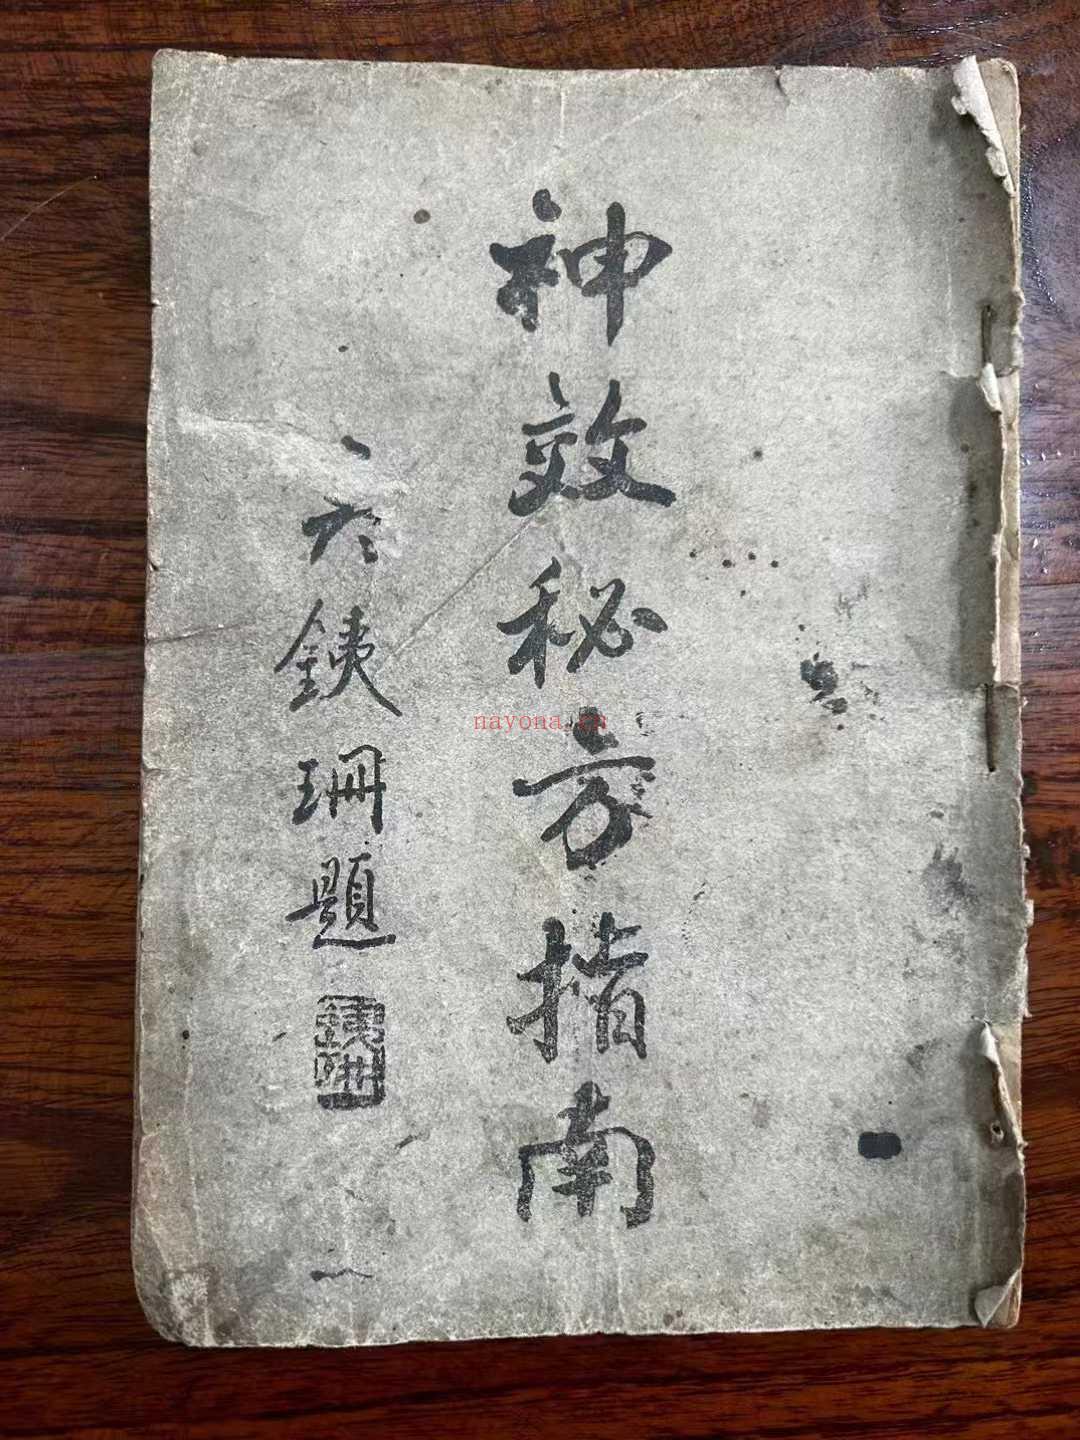 神效秘方指南
六銕珊題
銕珊
nayona.cn